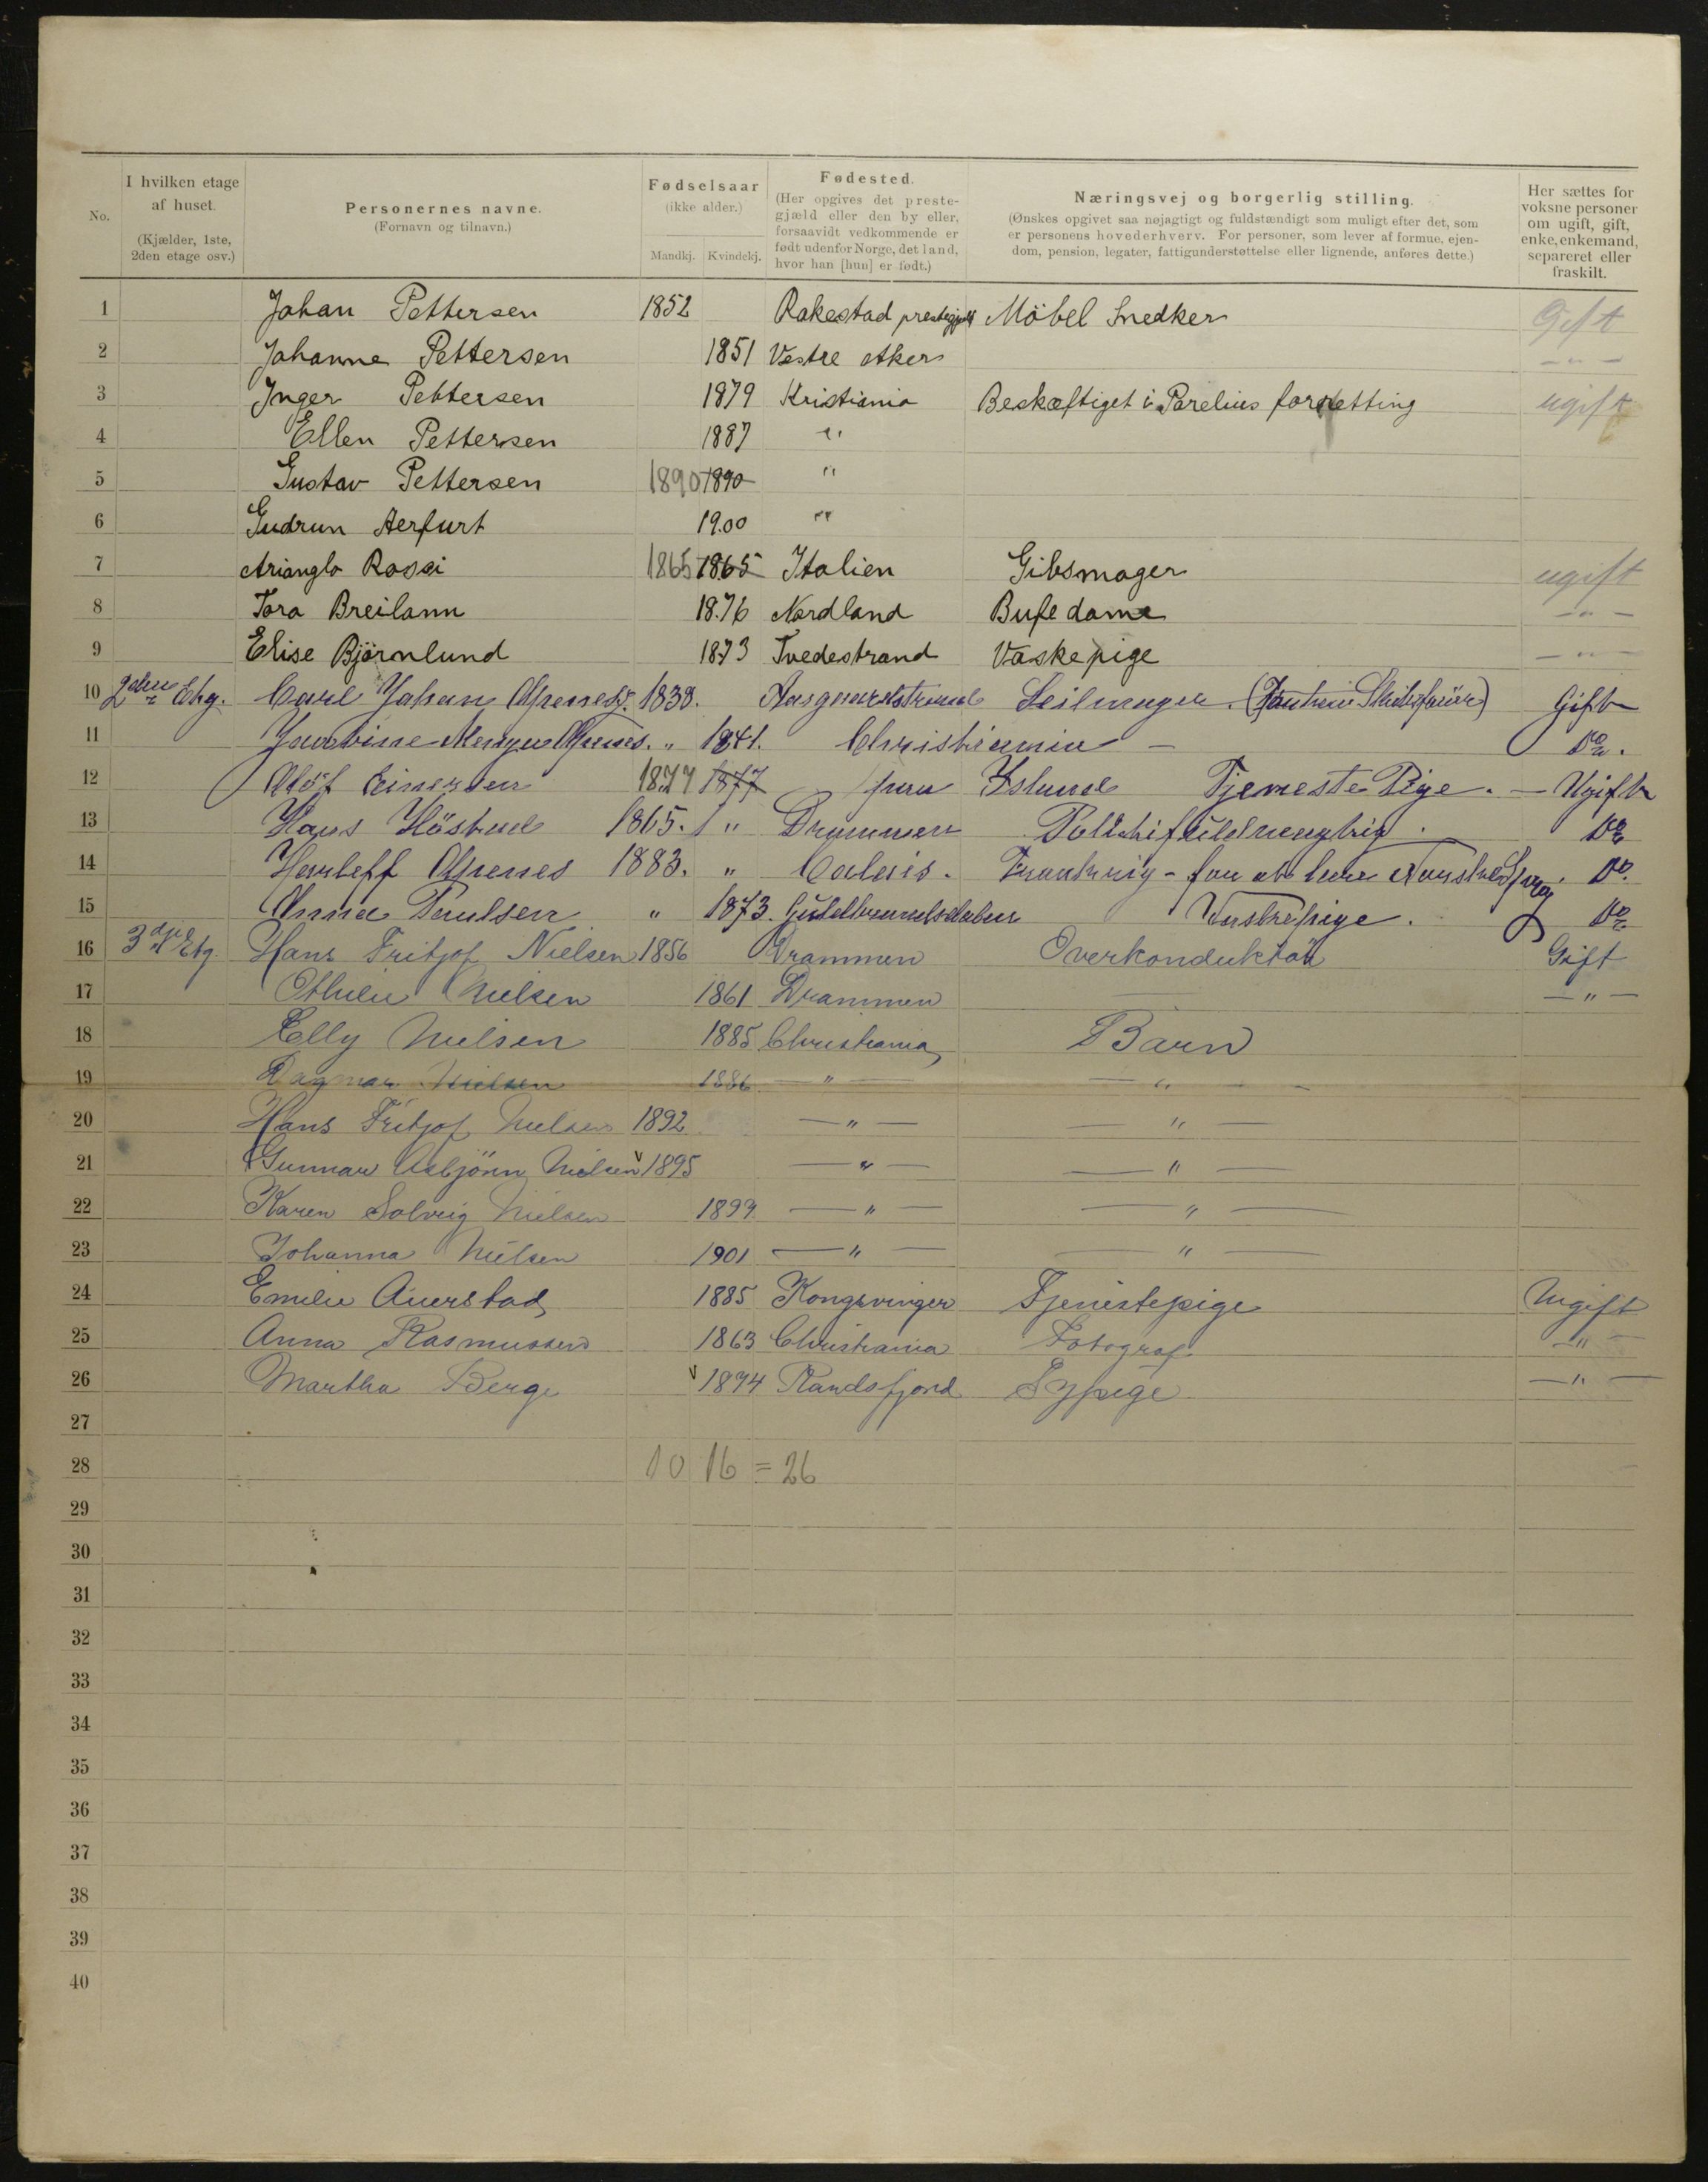 No.
I hvilken etage af huset. (Kjælder, 1ste, 2den etage osv.)
Personernes navne. (Fornavn og tilnavn.)
Fødselsaar (ikke alder.) Mandkj. Kvindekj.
Fødested. (Her opgives det prestegjæld eller den by eller, forsaavidt vedkommende er født udenfor Norge, det land, hvor han [hun] er født.)
Næringsvej og borgerlig stilling. (Ønskes opgivet saa nøjagtigt og fuldstændigt som muligt efter det, som er personens hovederhverv. For personer, som lever af formue, ejendom, pension, legater, fattigunderstøttelse eller lignende, anføres dette.)
Her sættes for voksne personer om ugift, gift, enke, enkemand, separeret eller fraskilt.
1 Johan Pettersen 1852 Rakestad prestegjeld Möbel Snedker Gift
2 Johanne Pettersen 1851 Vestre Aker — " —
3 Inger Pettersen 1879 Kristiania Beskæftiget i Parelius forretting ugift
4 Ellen Pettersen 1887 "
5 Gustav Pettersen 1890 1890 "
6 Gudrun Aerfurt 19.00 "
7 Arianglo Rossi 1865 1865 Italien Gibsmager ugift
8 Tora Breilann 18.76 Nordland Bufedame — " —
9 Elise Björnlund 1873 Tvedestrand Vaskepige — " —
10 2den Etg. Carl Johan 1838. Aasgaardstrand Seilmager. Gift
11 1841. Christiania — Do.
12 Olöf Einersen 1877 1877 paa Island Tjeneste Pige. — Ugift
13 Hans 1865. " Drammen Do
14 1883. " Calais. Do.
15 Anna Paulsen " 1873. Guldbrandsdalen Vaskepige. Do
16 3die Etg. Hans Fritjof Nielsen 1856 Drammen Overkonduktör Gift
17 Othilie Nielsen 1861 Drammen — — " —
18 Elly Nielsen 1885 Christiania Barn
19 Dagmar Nielsen 1886 — " — — " —
20 Hans Fritjof Nielsen 1892 — " — — " —
21 Gunnar Asbjönn Nielsen v 1895 — " — — " —
22 Karen Solveig Nielsen 1899 — " — — " —
23 Johanna Nielsen 1901 — " — — " —
24 Emilie Auerstad 1885 Kongsvinger Tjenestepige Ugift
25 Anna Rasmussen 1863 Christiania Fotograf. — " —
26 Martha Berge v 1874 Randsfjord Sypige — " —
27
28 10 16 = 26
29
30
31
32
33
34
35
36
37
38
39
40